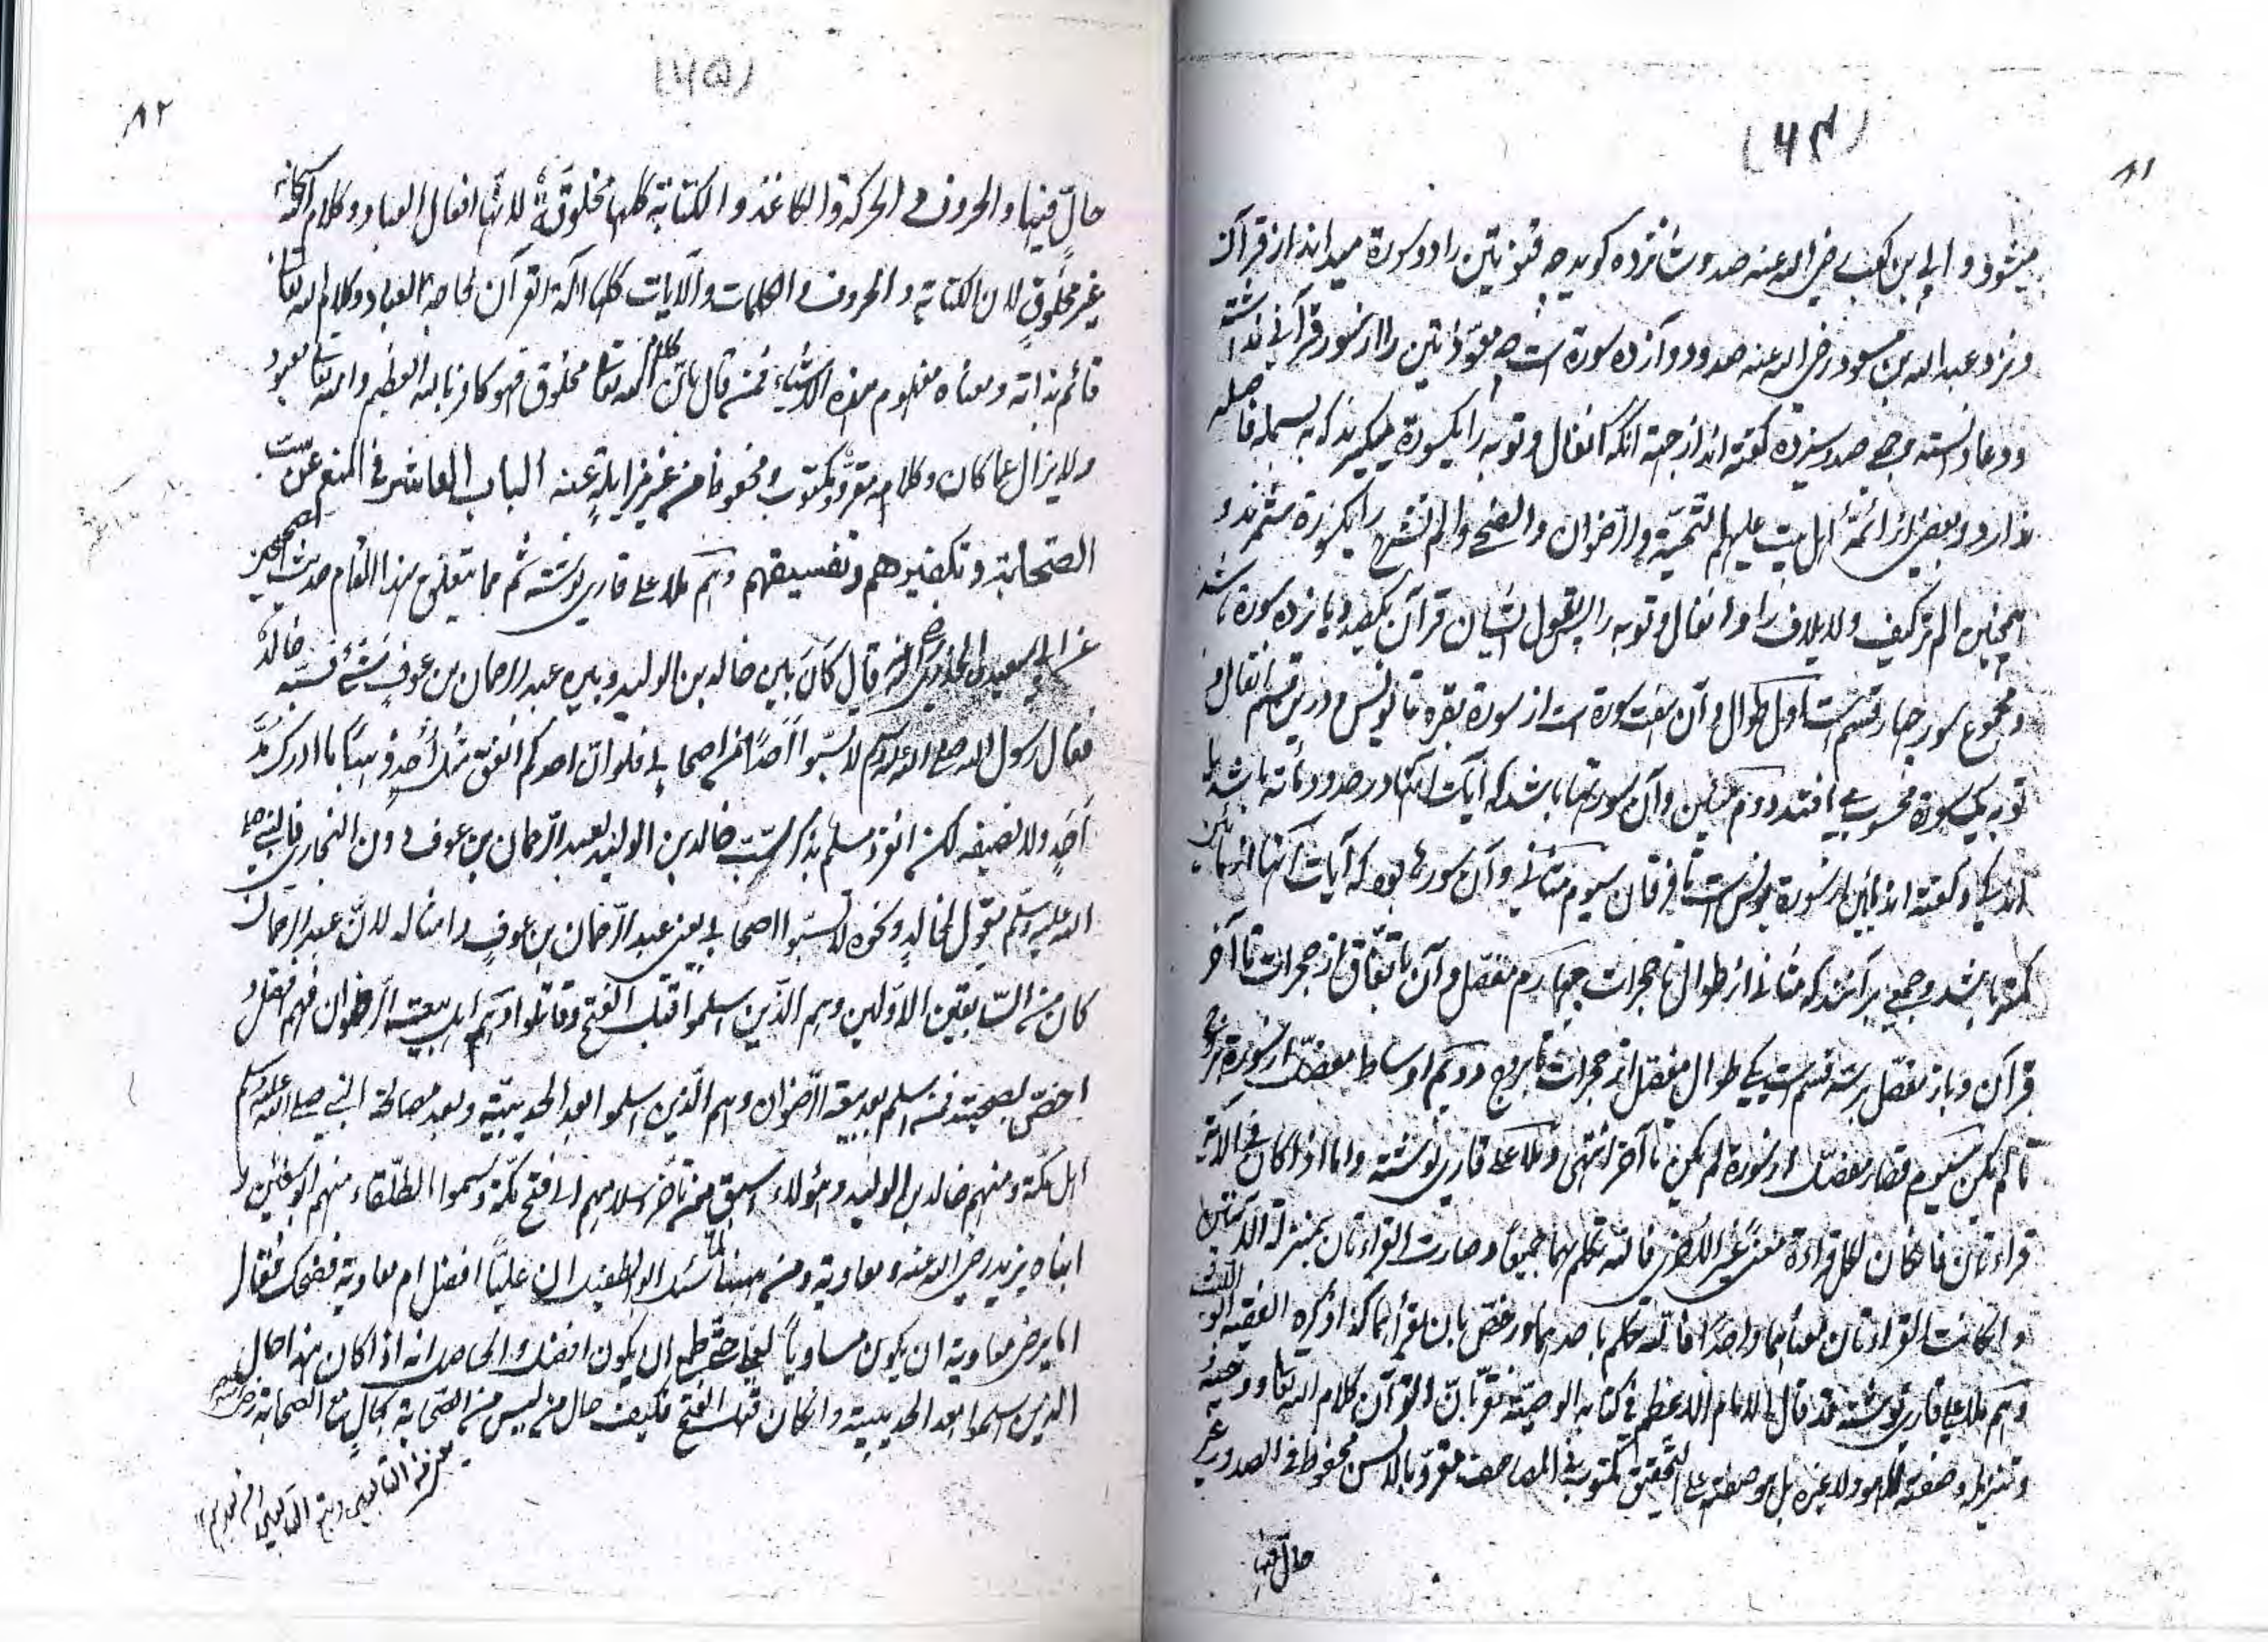 ۸۱
(۶۴)
میشود و ابی بن کعب رضی الله عنه صد و شانزده گوید چه قنوتین را دو سورة میداند از قرآن
و نزد عبد الله بن مسعود رضی الله عنه صد و دوازده سورة است چه معوذتین را از سور قرآنی نداشته
و دعا دانسته و جمعی صد و سیزده گفته اند از جهة آنکه انفال و توبه را یکسورة میگیرند که بسمله فاصله
ندارد و بعضی از ائمۀ اهل بیت علیهم التحیة والرضوان والضحی والم نشرح را یکسورة شمرند و
همچنین الم تر کیف و لایلاف را و انفال و توبه را پس بقول ایشان قرآن یکصد و یازده سورة باشد
و مجموع سور چهار قسم است اول طوال و آن هفت سورة است از سورة بقره تا یونس و درین قسم انفال و
توبه یک سورة محسوب می افتد دوم مئین و آن سورتها باشد که آیات آنها در حدود مأته باشد یا
اندکی و گفته اند مئین از سورة یونس است تا فرقان سیوم مثانی و آن سورها بود که آیات آنها از مئین
کمتر باشد و جمعی برآنند که مثانی از طوال تا حجرات چهارم مفصل و آن باتفاق از حجرات تا آخر
قرآن و باز مفصل بر سه قسم است یکی طوال مفصل از حجرات تا بروج دویم اوساط مفصل از سورة بروج
تا لم یکن سیوم قصار مفصل از سورة لم یکن تا آخر انتهی و ملا علی قاری نوشته واما اذا كان في الآية
قراءتان فان كان لكل قراءة معنی غیر الاخری فالله تکلم بهما جمیعاً و صارت القراءتان بمنزلة الآیتین
و ان کانت القراءتان معناهما واحداً فالله تکلم باحدهما و رخص بان یقرأ بهما کذا ذکره الفقیه ابو اللیث
و هم ملا علی قاری نوشته قد قال الامام الاعظم فی کتابه الوصیة نقرّ بانّ القرآن کلام الله تعالی و وحیه
و تنزیله و صفته لا هو ولا غیره بل هو صفته علی التحقیق مکتوب فی المصاحف مقرو بالالسن محفوظ فی الصدور غیر
حال فیها
۸۲
(۶۵)
حالّ فیها و الحروف و الحرکة و الکاغذ و الکتابة کلها مخلوقة لانّها افعال العباد و کلام الله سبحانه
غیر مخلوق لان الکتابة و الحروف و الکلمات و الآیات کلها آلة القرآن لحاجة العباد و کلام الله تعالی
قائم بذاته و معناه مفهوم بهذه الاشیاء فمن قال بانّ کلام الله تعالی مخلوق فهو کافر بالله العظیم و الله تعالی معبود
ولا یزال عما کان و کلامه مقرو و مکتوب و محفوظ من غیر مزایلة عنه الباب العاشر فی المنع عن سبّ
الصحابة و تکفیرهم و تفسیقهم و هم ملا علی قاری نوشته ثم مما یتعلق بهذا المقام حدیث الصحیحین
عن ابی سعید الخدری رضی الله عنه قال کان بین خالد بن الولید و بین عبد الرحمان بن عوف شئ فسبّه خالدٌ
فقال رسول الله صلی الله علیه وسلم لا تسبّوا احداً من اصحابی فلو انّ احدکم انفق مثل اُحد ذهباً ما ادرک مدّ
احدٍ ولا نصیفه لکن انفرد مسلم بذکر سبّ خالد بن الولید لعبد الرّحمان بن عوف دون البخاری فالنبی صلی
الله علیه و سلّم یقول لخالدٍ و نحوه لا تسبّوا اصحابی یعنی عبد الرّحمان بن عوفٍ و امثاله لانّ عبد الرحمان
کان من السّابقین الاوّلین و هم الذّین اسلموا قبل الفتح و قاتلوا و هم اهل بیعة الرّضوان فهم افضل و
اخصّ بصحبته فمن اسلم بعد بیعة الرّضوان و هم الّذین اسلموا بعد الحدیبیّة و بعد مصالحة النبی صلی الله علیه وسلم
اهل مکّة و منهم خالد بن الولید و هؤلاء اسبق ممن تأخّر اسلامهم الی فتح مکّة و سموا الطلّقاء منهم ابو سفین و
ابناه یزید رضی الله عنه و معاویة و من ههنا لمّا سئل ابو الطفیل ان علیّاً افضل ام معاویة فضحک فقال
اما یرضی معاویة ان یکون مساویاً لعلی حتّی یطمع ان یکون افضل و الحاصل انه اذا کان هذا حال
الذین اسلموا بعد الحدیبیة و ان کان قبل الفتح فکیف حال من لیس من الصّحابة بحال مع الصحابة رضی الله عنهم
من التابعین و تبع التابعین